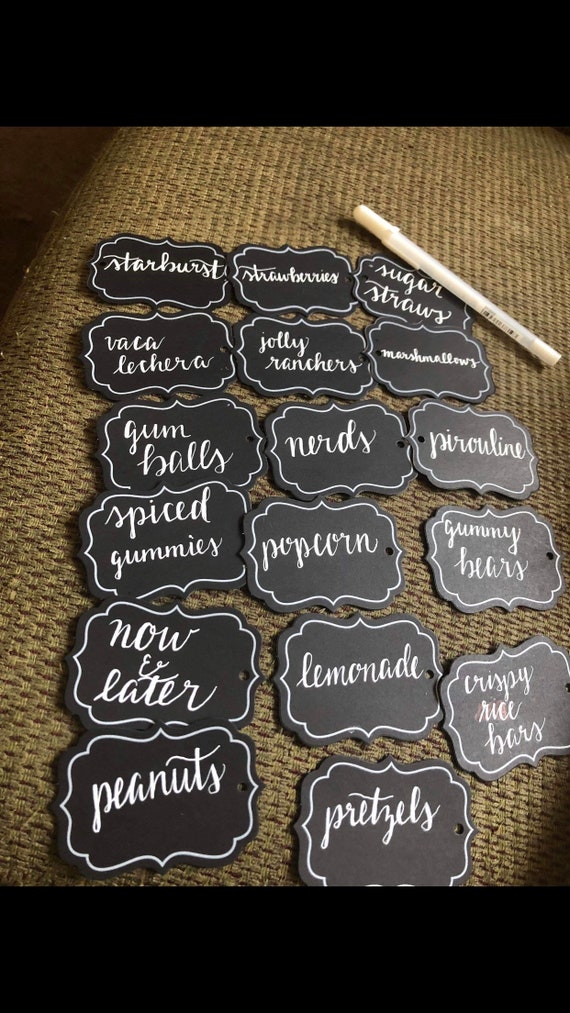 starburst
strawberries
sugar
straws
vaca
lechera
jolly
ranchers
marshmallows
gum
balls
nerds
pirouline
spiced
gummies
popcorn
gummy
bears
now
&
later
lemonade
crispy
rice
bars
peanuts
pretzels